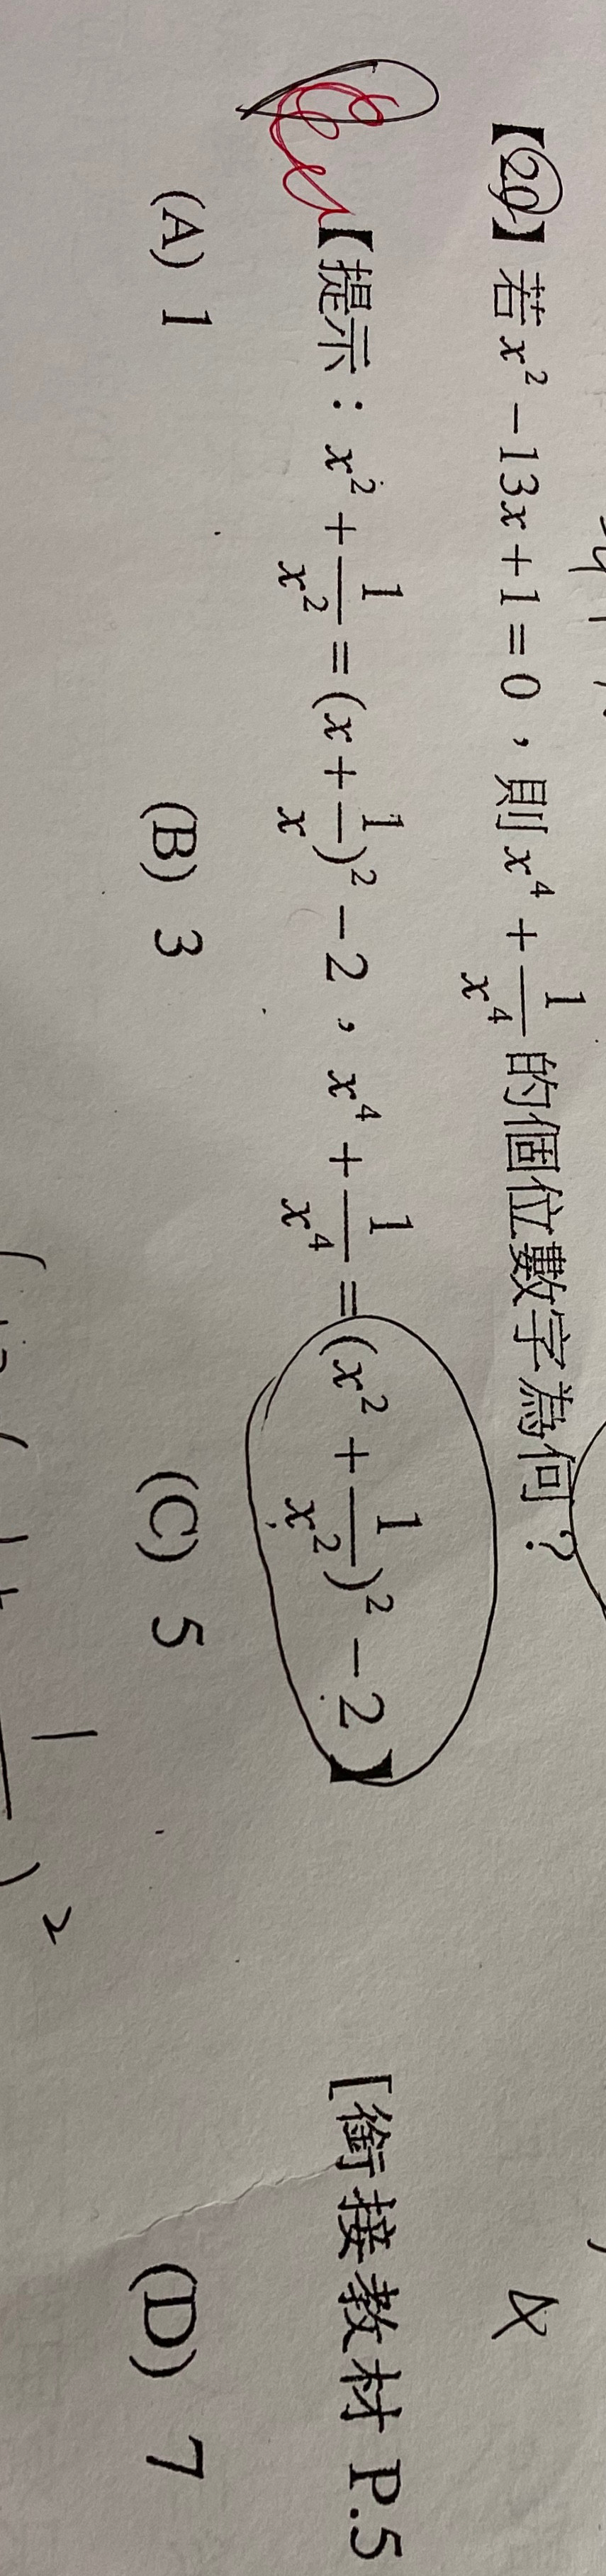 【20】若 x² − 13x + 1 = 0，則 x⁴ + 1/x⁴ 的個位數字為何？
【提示：x² + 1/x² = (x + 1/x)² − 2，x⁴ + 1/x⁴ = (x² + 1/x²)² − 2】 [銜接教材 P.5
(A) 1 (B) 3 (C) 5 (D) 7